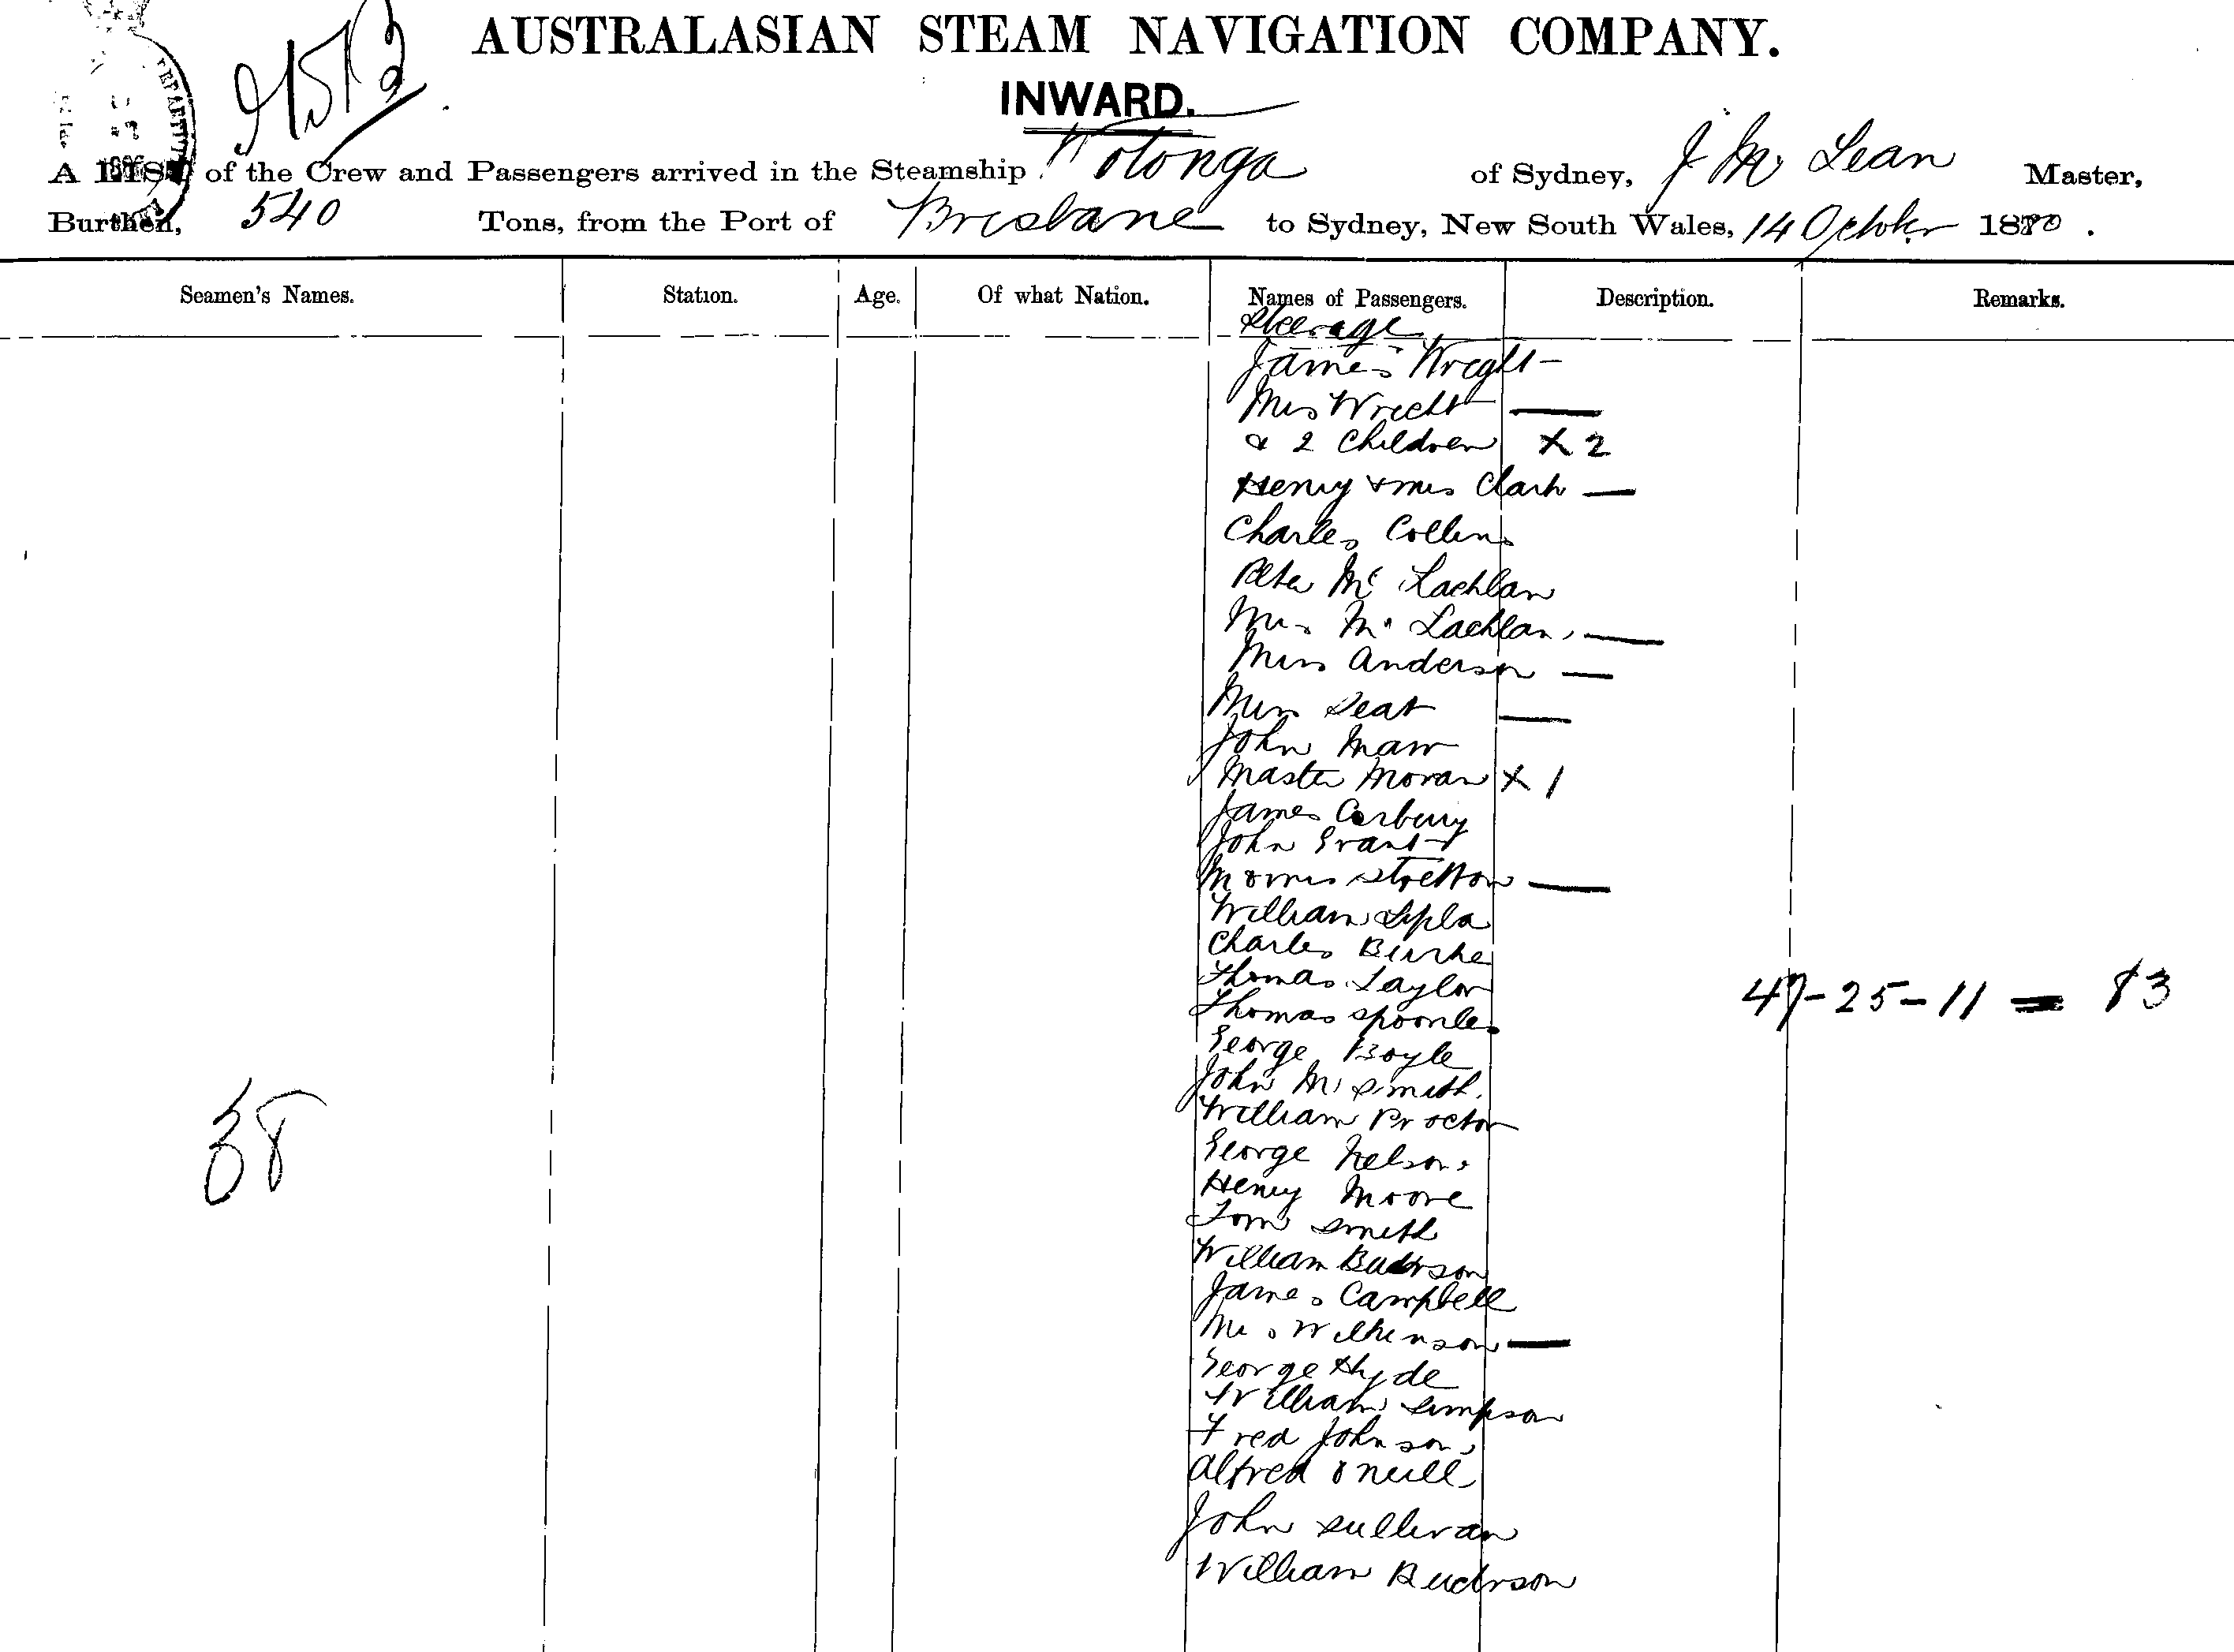 AUSTRALASIAN STEAM NAVIGATION COMPANY.
INWARD.
A LIST of the Crew and Passengers arrived in the Steamship Wotonga of Sydney, J Mc Lean Master,
Burthen, 540 Tons, from the Port of Brisbane to Sydney, New South Wales, 14 October 1880.
Seamen's Names. Station. Age. Of what Nation. Names of Passengers. Description. Remarks.
Steerage
James Wright —
Mrs Wright —
& 2 Children X 2
Henry & Mrs Clark —
Charles Collins
Peter Mc Lachlan
Mrs Mc Lachlan —
Miss Anderson —
Miss Seat —
John Maw
Master Moran X 1
James Corbury
John Grant
Morris Stretton —
William
Charles Burke
Thomas Taylor
47-25-11 = 83
Thomas
George Boyle
John Mc Smith
William Proctor
38
George Nelson
Henry Moore
Tom Smith
William
James Campbell
Mrs Wilkinson —
George Hyde
William Simpson
Fred Johnson
Alfred O'Neill
John Sullivan
William